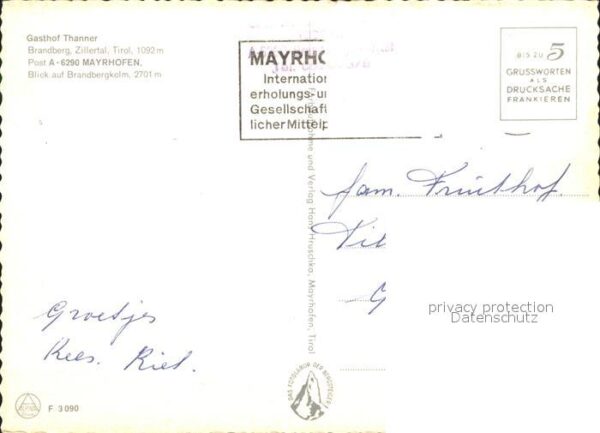 Gasthof Thanner
Brandberg, Zillertal, Tirol, 1092 m
Post A-6290 MAYRHOFEN,
Blick auf Brandbergkolm, 2701 m
MAYRHO
Internation
erholungs-u
Gesellschaft
licher Mittelp
BIS ZU 5
GRUSSWORTEN
ALS
DRUCKSACHE
FRANKIEREN
und Verlag Hans Hruschka, Mayrhofen, Tirol
fam. Fruithof.
G
privacy protection
Datenschutz
Groetjes
Kees. Riet.
DAS FOTOLABOR DER BERGSTEIGER
F 3090